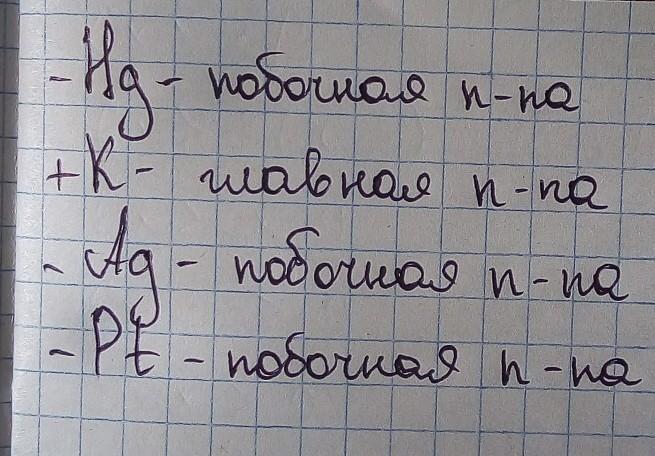 - Hg - побочная п-па
+ K - главная п-па
- Ag - побочная п-па
- Pt - побочная п-па